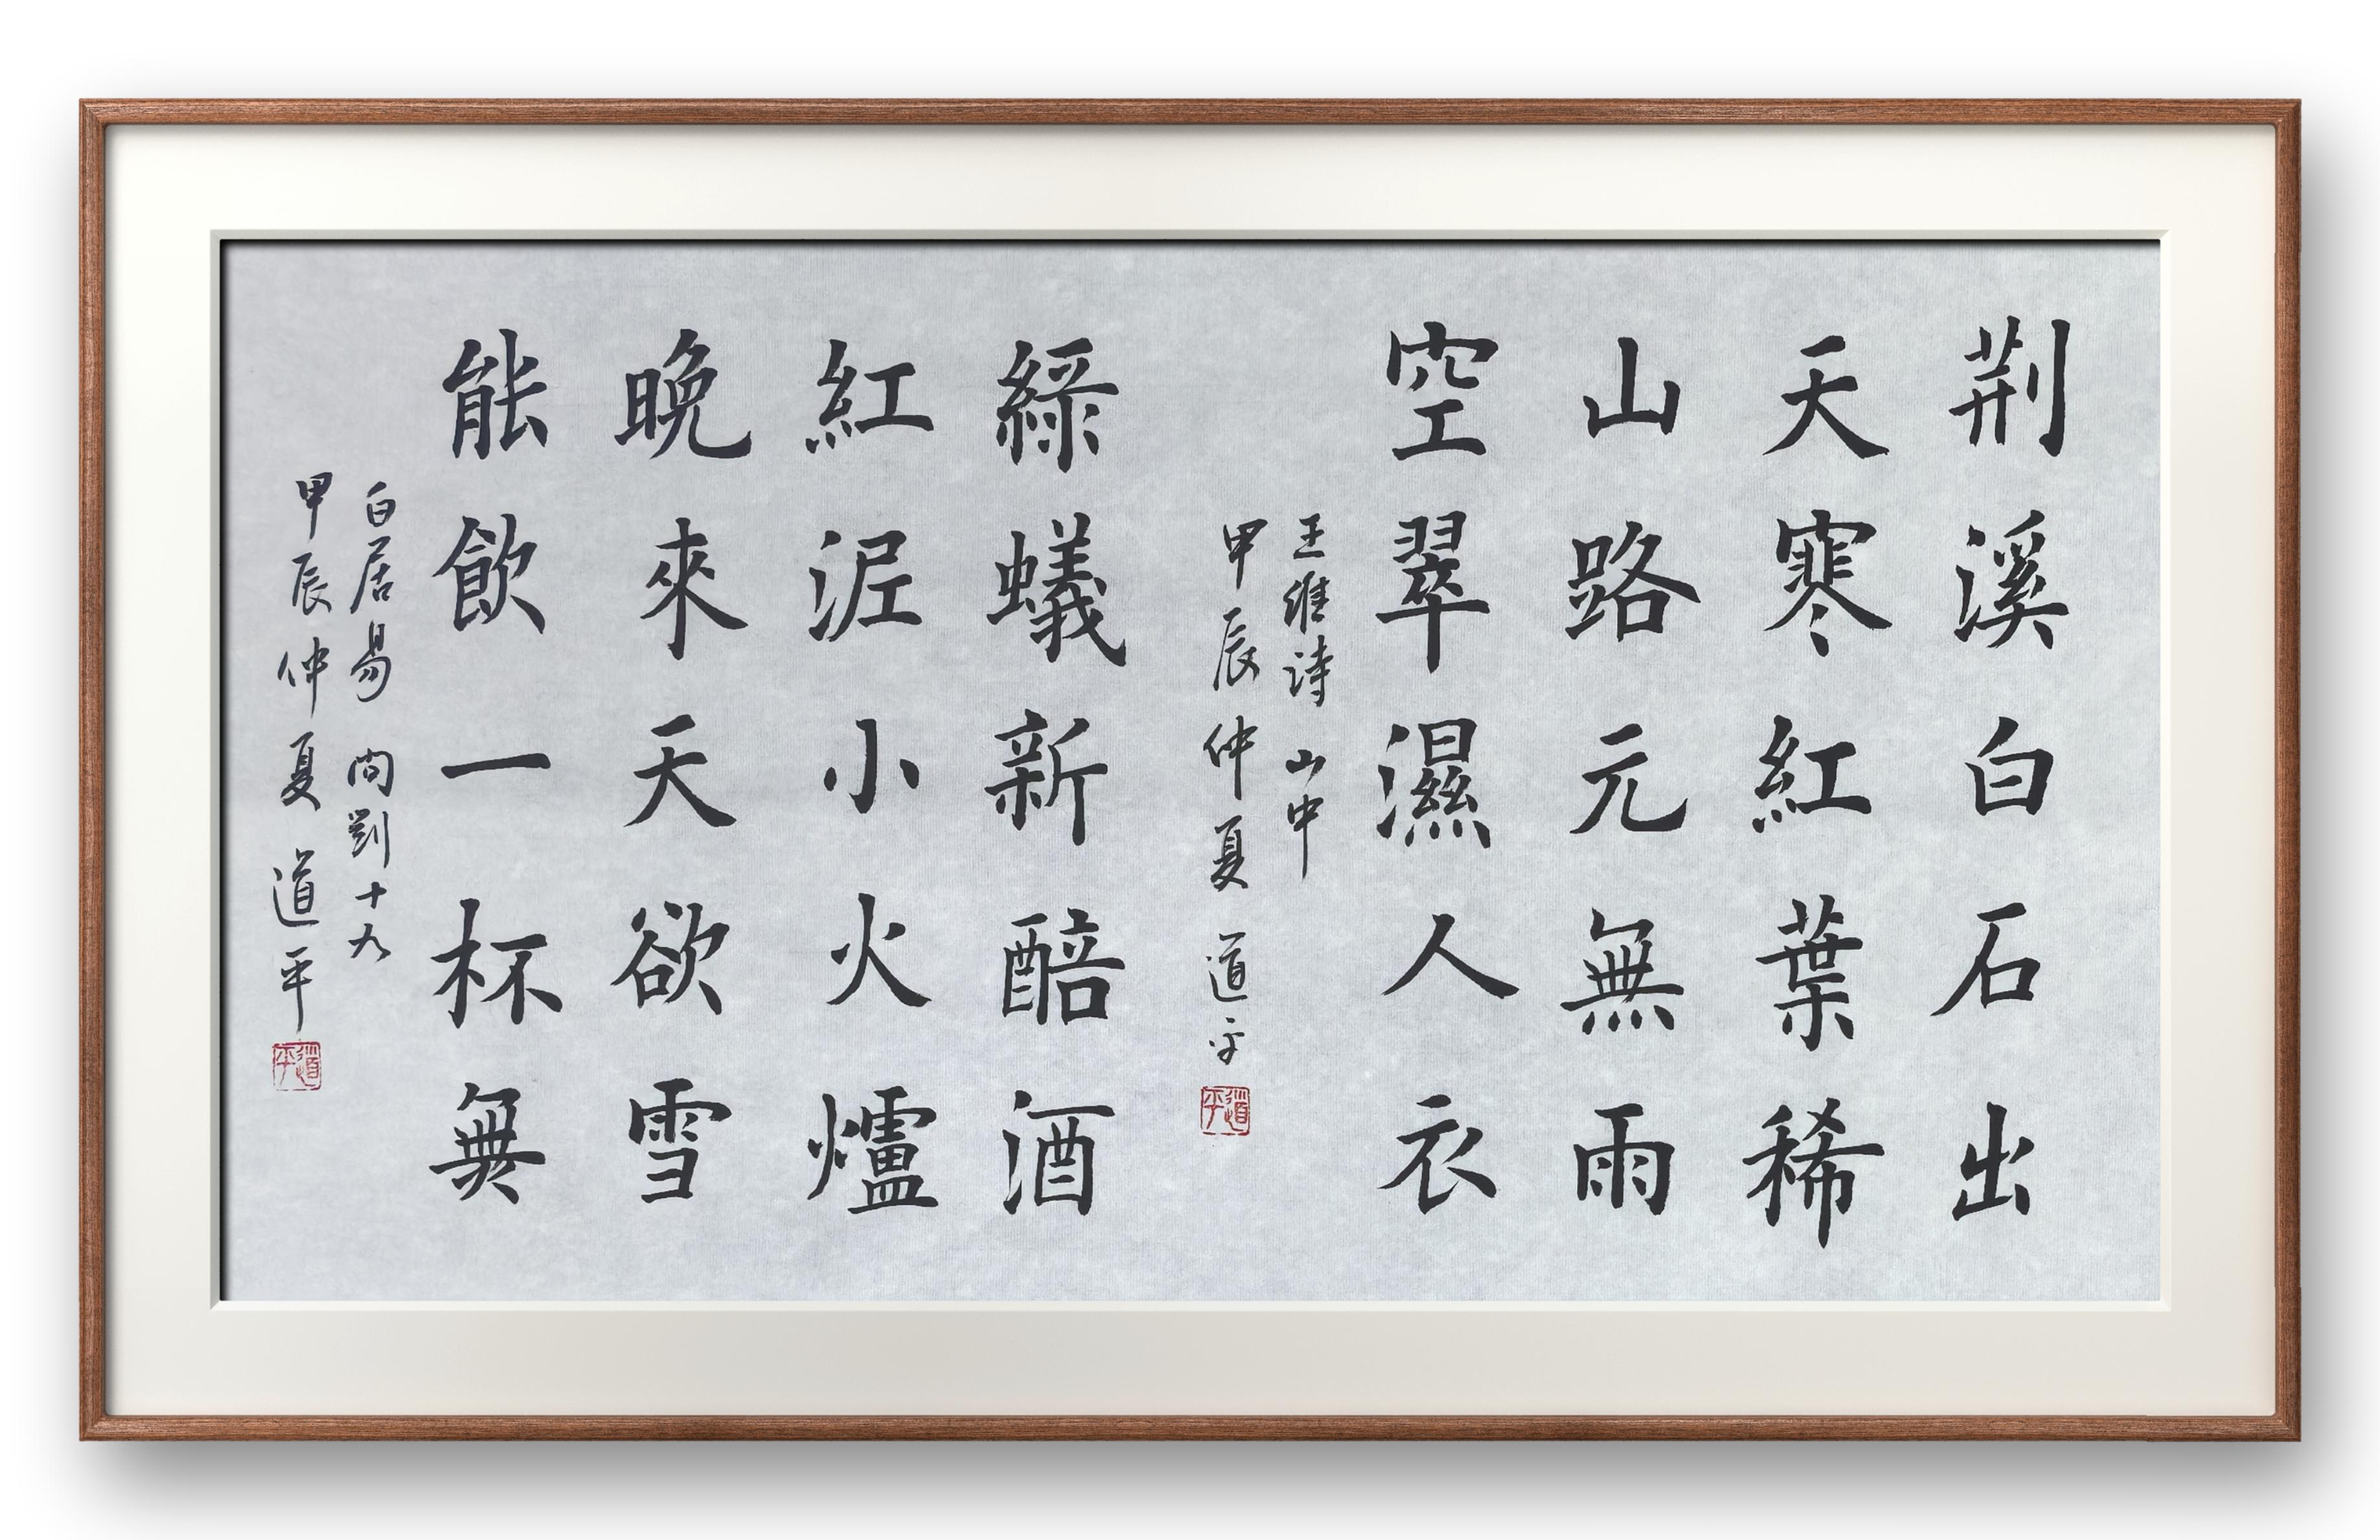 荆溪白石出
天寒紅葉稀
山路元無雨
空翠濕人衣
王維诗 山中
甲辰仲夏 道平
道平
綠蟻新醅酒
紅泥小火爐
晚來天欲雪
能飲一杯無
白居易 问劉十九
甲辰仲夏 道平
道平